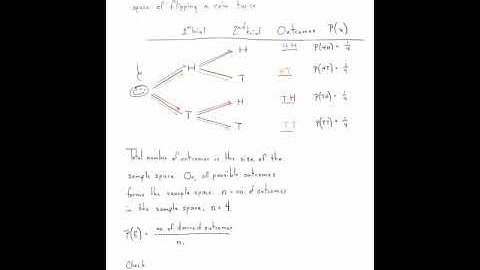 space of flipping a coin twice
1st trial 2nd trial Outcomes P(x)
H HH P(HH) = 1/4
H
T HT P(HT) = 1/4
H TH P(TH) = 1/4
T
T TT P(TT) = 1/4
Total number of outcomes is the size of the
sample space. Or, all possible outcomes
forms the sample space. n = no. of outcomes
in the sample space, n = 4
P(E) = no. of desired outcomes
n
Check